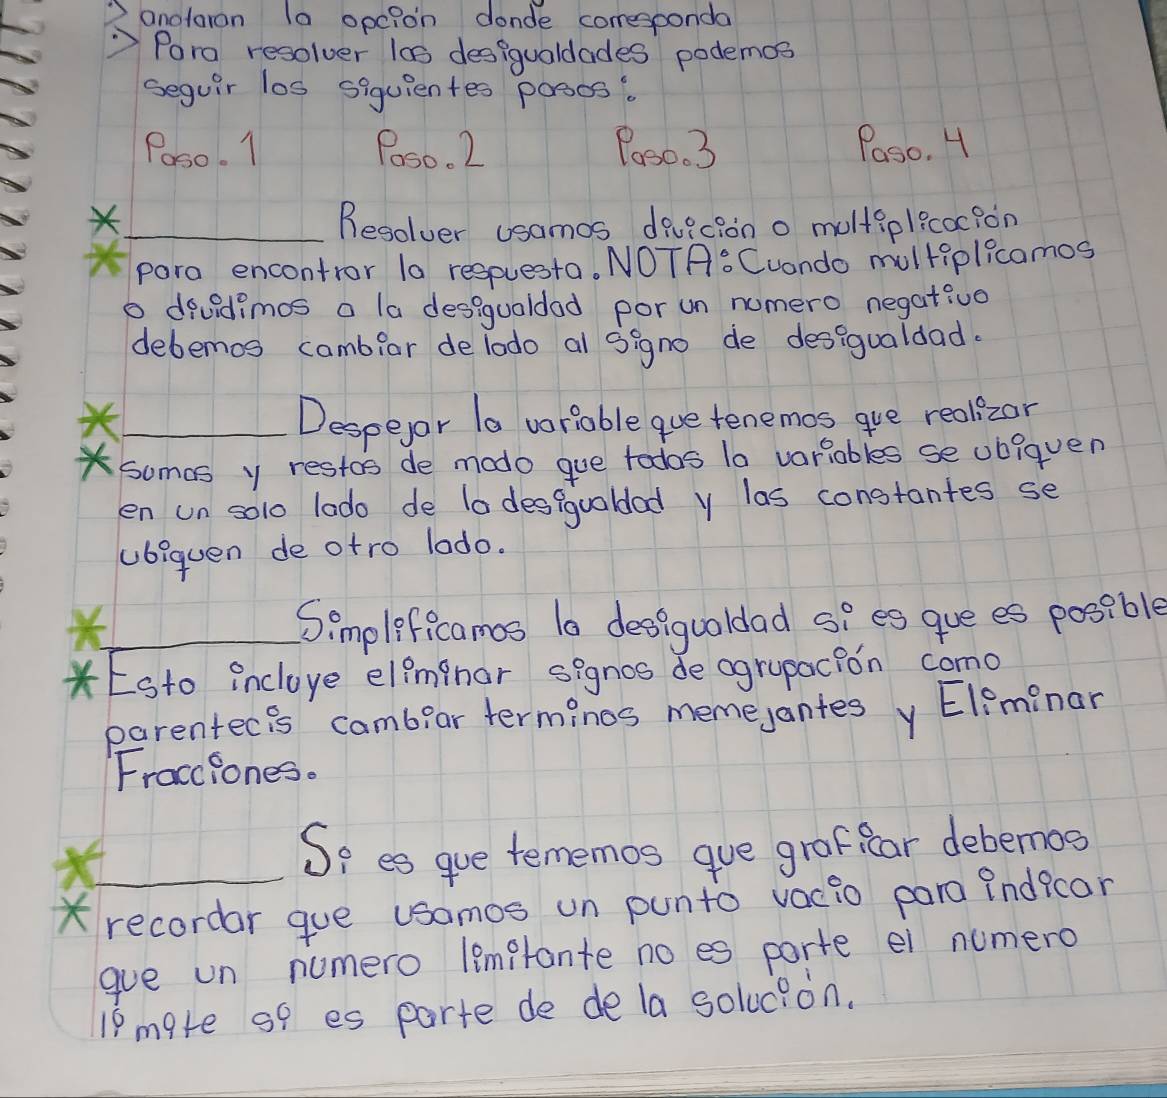 > anotaron la opción donde corresponda
> Para resolver las desigualdades podemos
seguir los siguientes pasos:
Paso. 1 Paso. 2 Paso. 3 Paso. 4
* ________ Resolver usamos divición o multiplicación
* para encontrar la respuesta. NOTA: Cuando multiplicamos
o dividimos a la desigualdad por un numero negativo
debemos cambiar de lado al signo de desigualdad.
* ________ Despejar la variable que tenemos que realizar
* sumas y restas de modo que todas la variables se ubiquen
en un solo lado de la desigualdad y las constantes se
ubiquen de otro lado.
* ________ Simplificamos la desigualdad si es que es posible
* Esto incluye eliminar signos de agrupación como
parentecis cambiar terminos memejantes y Eliminar
Fracciones.
* ________ Si es que tememos que graficar debemos
* recordar que usamos un punto vacio para indicar
que un numero limitante no es parte el numero
limite si es parte de de la solución.